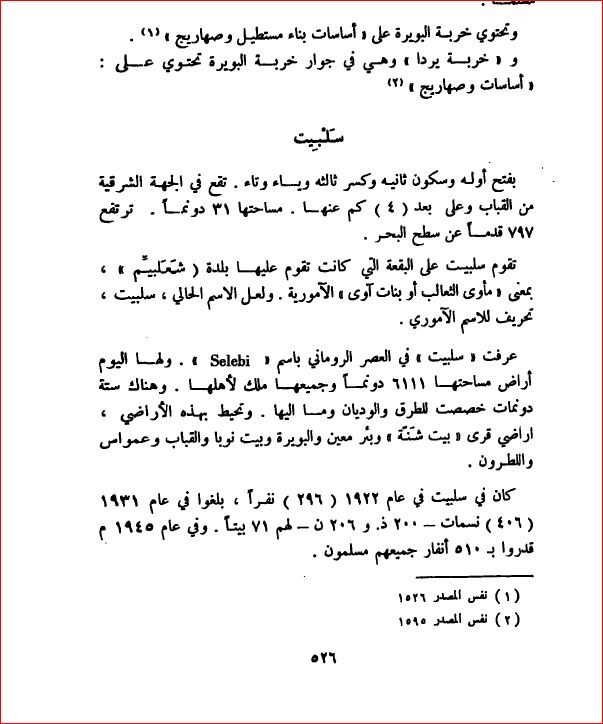 وتحتوي خربة البويرة على « أساسات بناء مستطيل وصهاريج » (١) .
و « خربة يردا » وهي في جوار خربة البويرة تحتوي على :
« أساسات وصهاريج » (٢)
سَلْبِيت
بفتح أوله وسكون ثانيه وكسر ثالثه وياء وتاء . تقع في الجهة الشرقية
من القباب وعلى بعد ( ٤ ) كم عنها . مساحتها ٣١ دونماً . ترتفع
٧٩٧ قدماً عن سطح البحر .
تقوم سلبيت على البقعة التي كانت تقوم عليها بلدة ( شَعَلبيِّم » ،
بمعنى « مأوى الثعالب أو بنات آوى » الآمورية . ولعل الاسم الحالي ، سلبيت ،
تحريف للاسم الآموري .
عرفت « سلبيت » في العصر الروماني باسم « Selebi » . ولها اليوم
أراض مساحتها ٦١١١ دونماً وجميعها ملك لأهلها . وهناك ستة
دونمات خصصت للطرق والوديان وما اليها . وتحيط بهذه الأراضي ،
اراضي قرى « بيت شَنّة » وبئر معين والبويرة وبيت نوبا والقباب وعمواس
واللطرون .
كان في سلبيت في عام ١٩٢٢ ( ٢٩٦ ) نفراً ، بلغوا في عام ١٩٣١
( ٤٠٦ ) نسمات – ٢٠٠ ذ. و ٢٠٦ ن – لهم ٧١ بيتاً . وفي عام ١٩٤٥ م
قدروا بـ ٥١٠ أنفار جميعهم مسلمون .
( ١ ) نفس المصدر ١٥٢٦
( ٢ ) نفس المصدر ١٥٩٥
٥٢٦